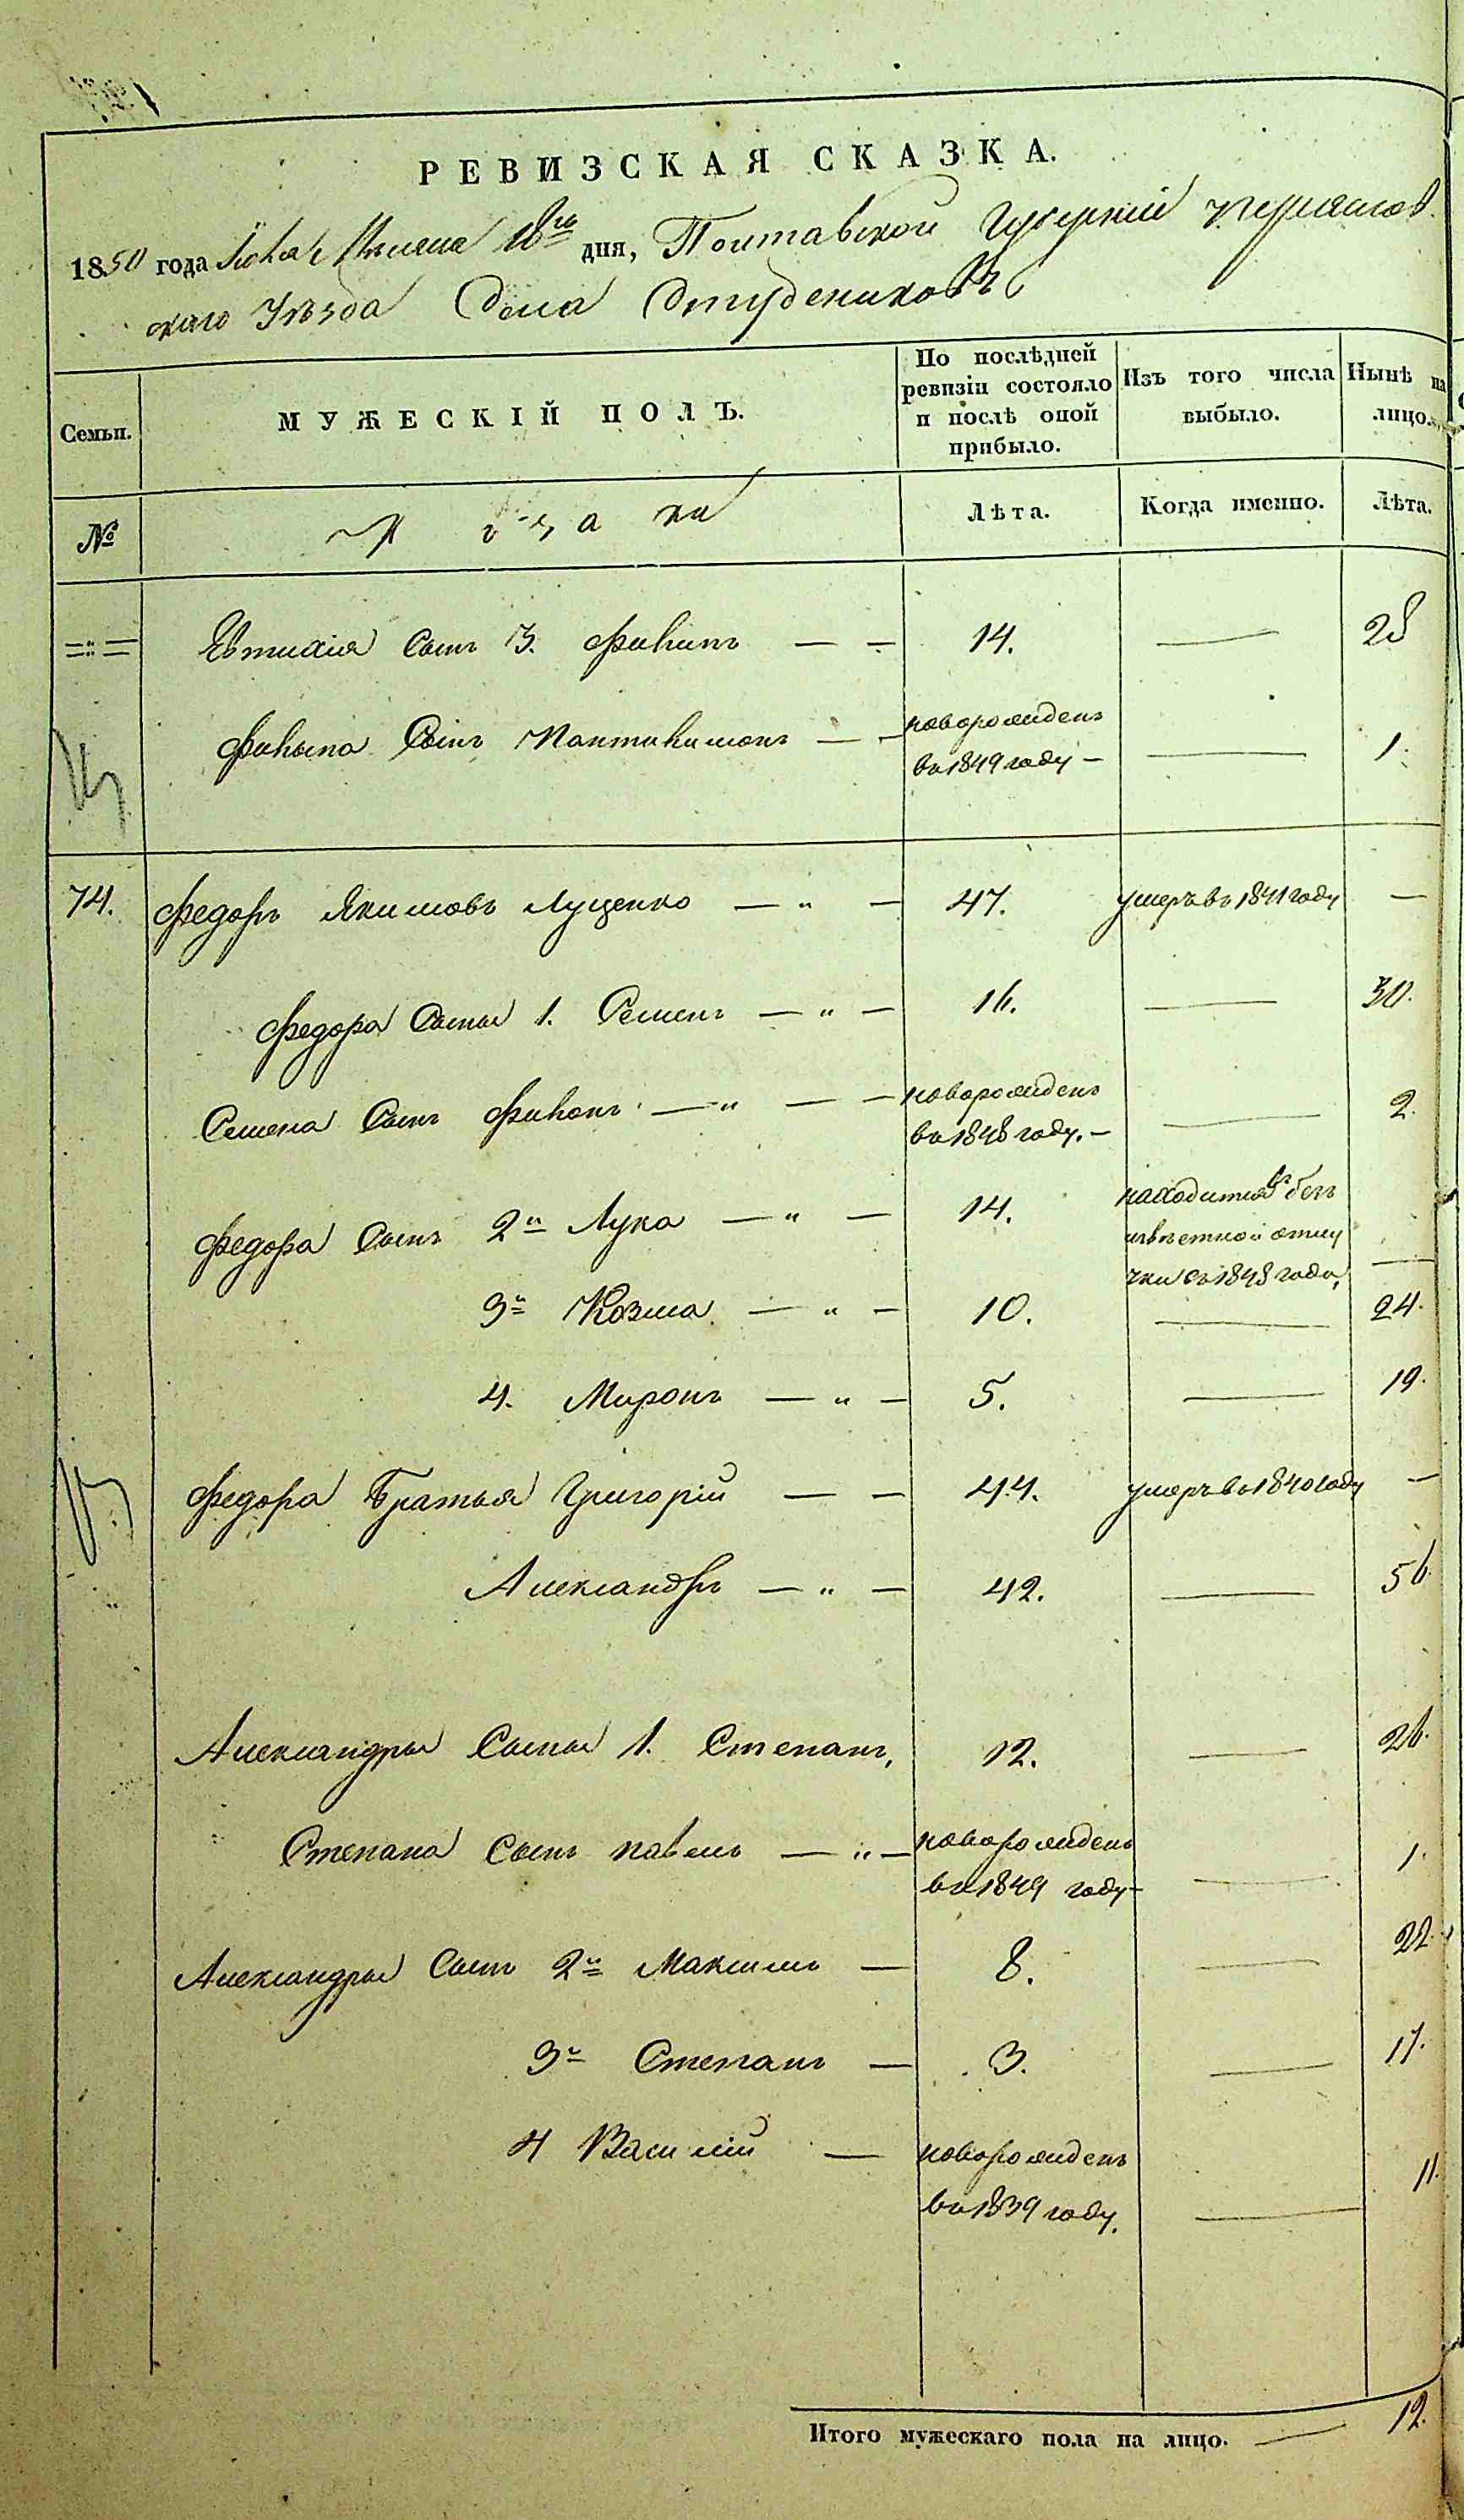 РЕВИЗСКАЯ СКАЗКА.
1850 года Іюля Мѣсяца 18го дня, Полтавской Губерніи Переяслов
скаго Уѣзда Села Студениковъ
Семьи.
МУЖЕСКІЙ ПОЛЪ.
По послѣдней ревизіи состояло и послѣ оной прибыло.
Изъ того числа выбыло.
Нынѣ на лицо.
№
Козаки
Лѣта.
Когда именно.
Лѣта.
Евтихія Сынъ 3. Филипъ — — 14. — 28
Филипа Сынъ Пантилимонъ — — новорожденъ
въ 1849 году — — 1.
74. Федоръ Якимовъ Луценко — „ — 47. умеръ въ 1841 году —
Федора Сыны 1. Семенъ — „ — 16. — 30.
Семена Сынъ Филонъ — „ — — новорожденъ — 2.
въ 1848 году. —
Федора Сынъ 2й Лука — „ — 14. находится въ без
извѣстной отлу
чки съ 1848 года, —
3й Козма — „ — 10. — 24.
4. Миронъ — „ — 5. — 19.
Федора Братья Григорій — — 44. умеръ въ 1840 году —
Александръ — „ — 42. — 56.
Александры Сыны 1. Степанъ, 12. — 26.
Степана Сынъ павелъ — „ — новорожденъ — 1.
въ 1849 году —
Александры Сынъ 2й Максимъ — 8. — 22.
3й Степанъ — 3. — 17.
4 Василій — новорожденъ
въ 1839 году. — 11.
Итого мужескаго пола на лицо. — 12.